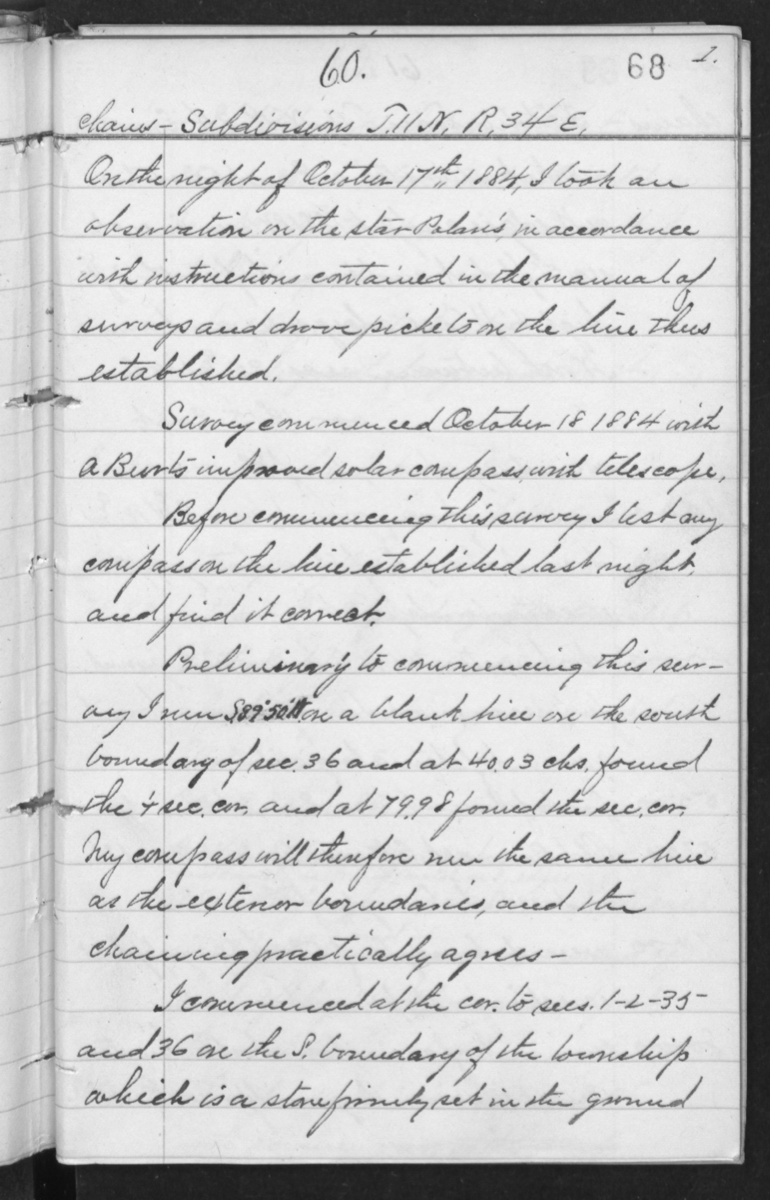 60. 68 1.
Chains - Subdivisions T. 11 N. R. 34 E.
On the night of October 17th 1884, I took an
observation on the star Polaris, in accordance
with instructions contained in the manual of
surveys and drove pickets on the line thus
established.
Survey commenced October 18 1884 with
a Burts improved solar compass with telescope,
Before commencing this survey I test my
compass on the line established last night,
and find it correct.
Preliminary to commencing this sur-
vey I run S 89° 50' W. on a blank line on the south
boundary of sec. 36 and at 40.03 chs. found
the 1/4 sec. cor. and at 79.98 found the sec. cor.
My compass will therefore run the same line
as the exterior boundaries, and the
chaining practically agrees -
I commenced at the cor. to secs. 1-2-35
and 36 on the S. boundary of the township
which is a stone firmly set in the ground